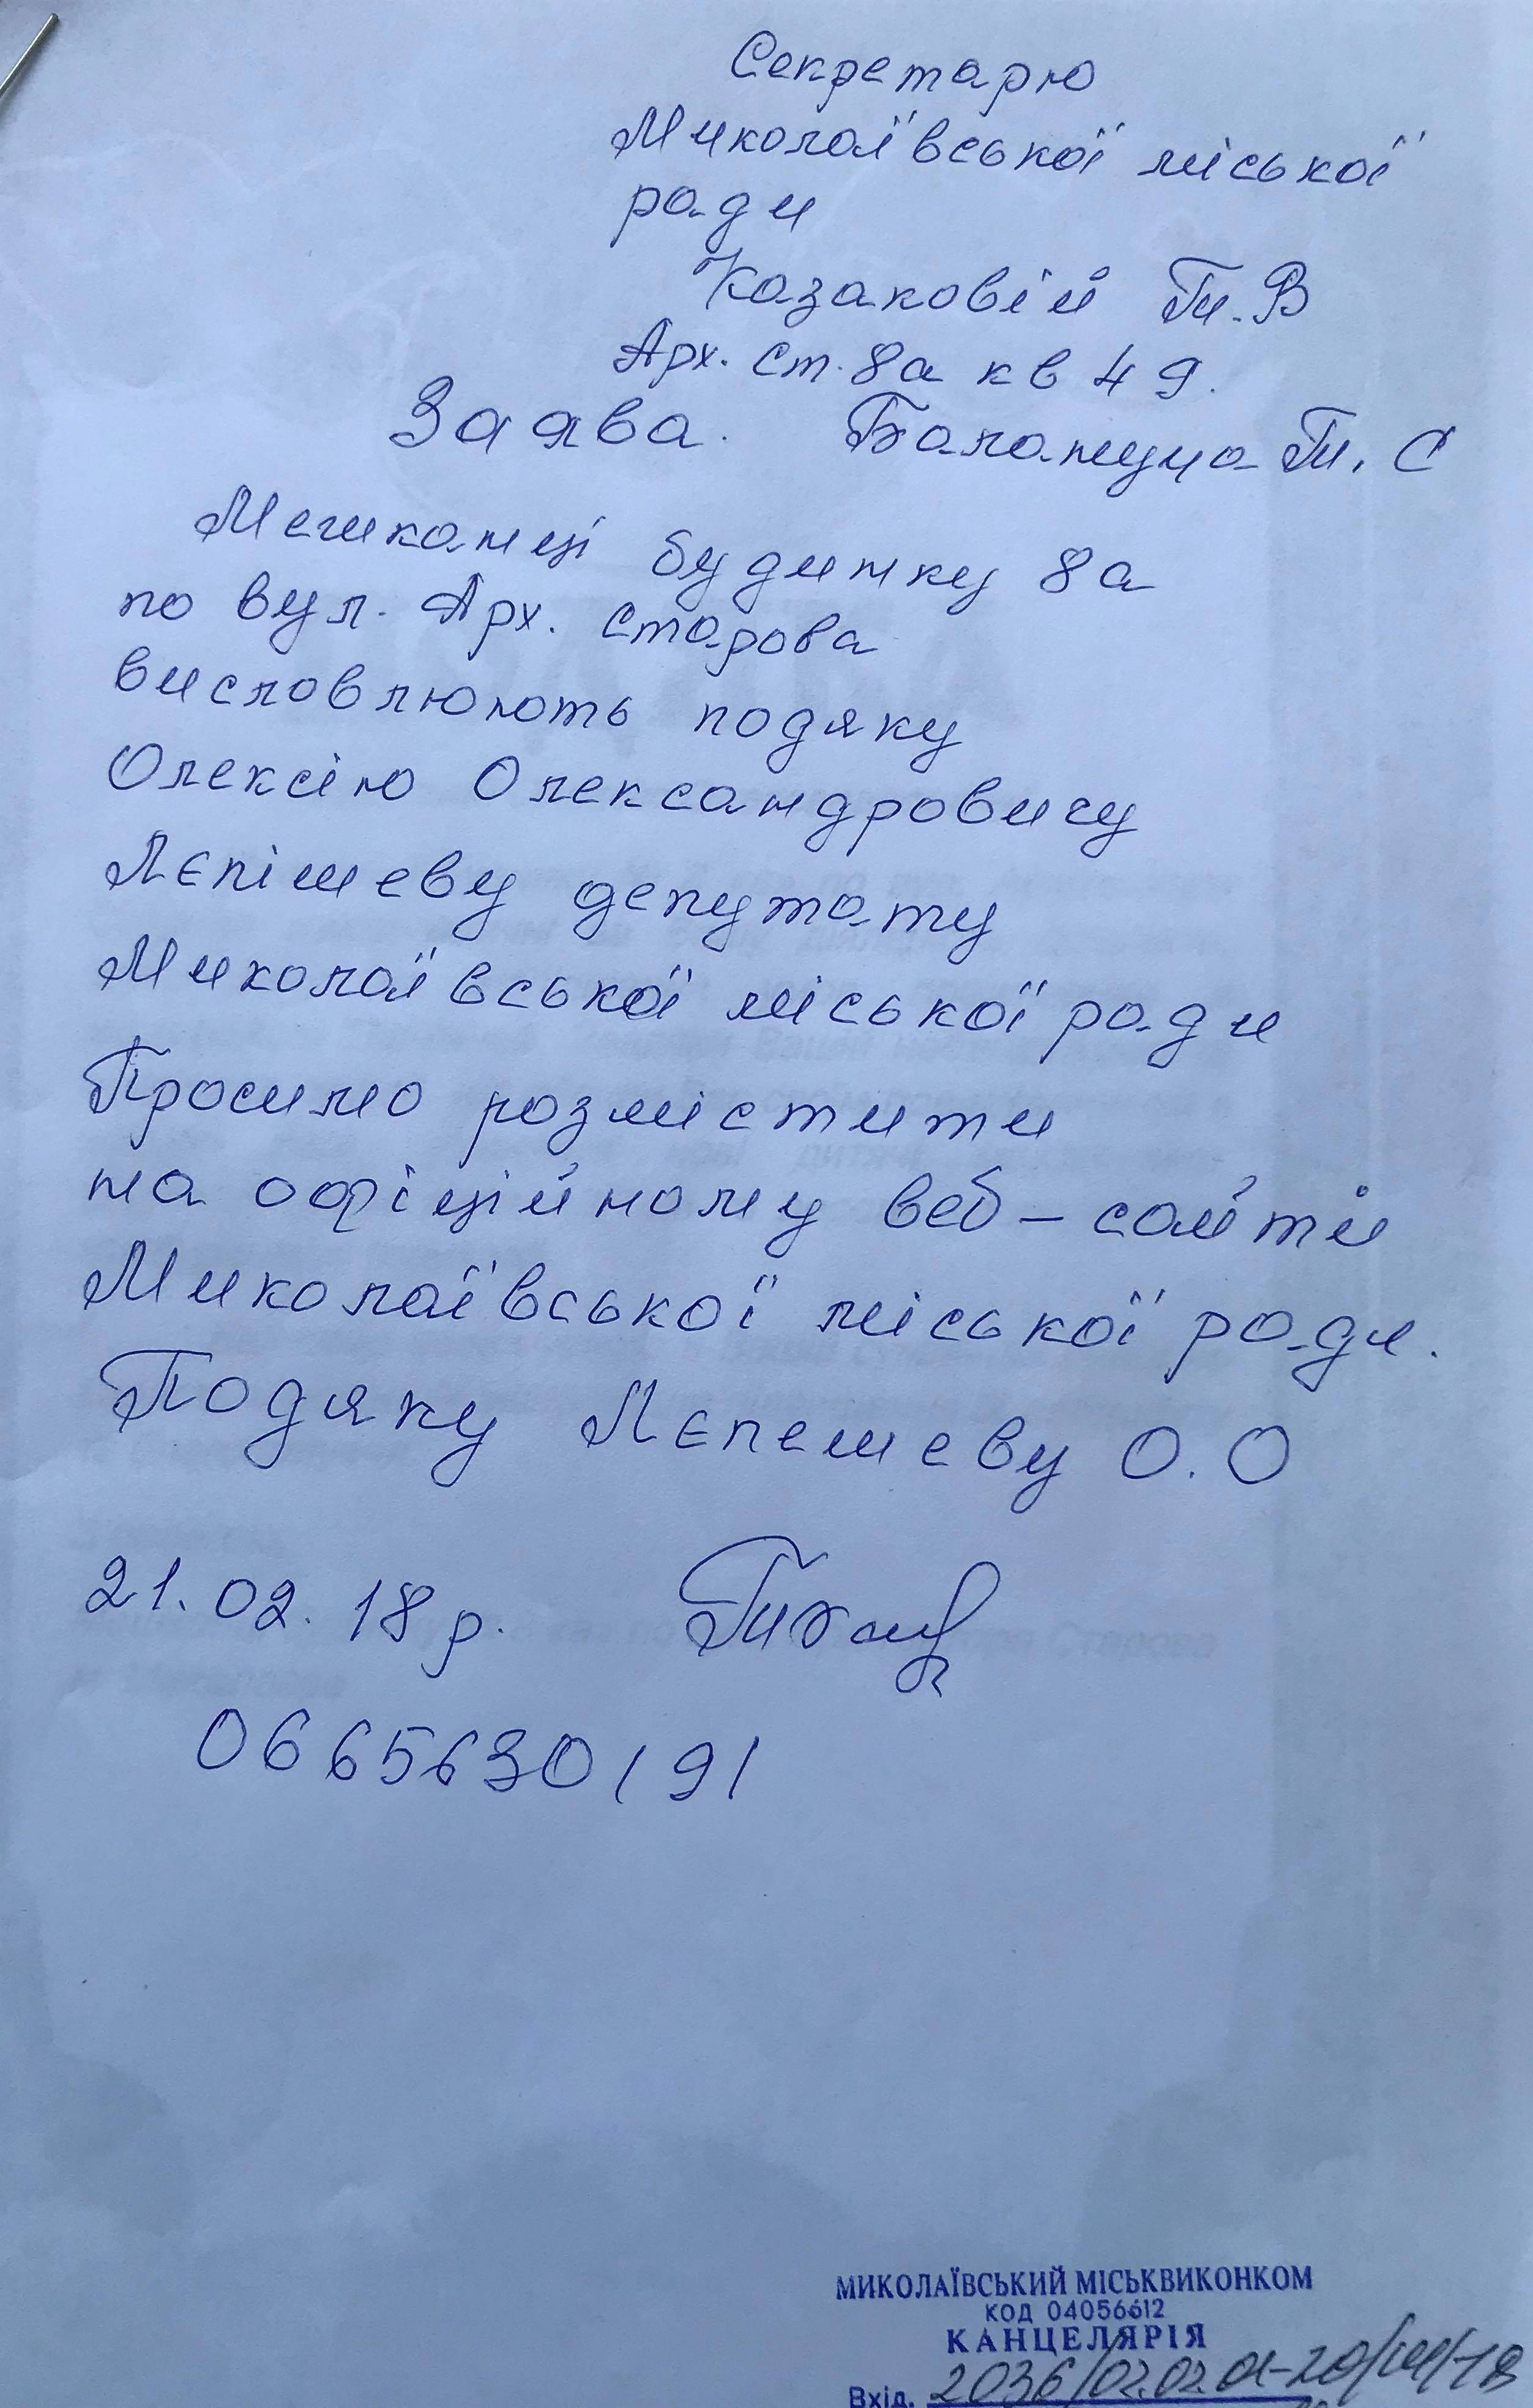 Секретарю
Миколаївської міської
ради
Казаковій Т.В
Арх. Ст. 8а кв 49.
Заява. Т. С
Мешканці будинку 8а
по вул. Арх. Старова
висловлюють подяку
Олексію Олександровичу
Лєпішеву депутату
Миколаївської міської ради
Просимо розмістити
на офіційному веб-сайти
Миколаївської міської ради.
Подяку Лєпешеву О.О
21.02.18р.
0665630191
МИКОЛАЇВСЬКИЙ МІСЬКВИКОНКОМ
КОД 04056612
КАНЦЕЛЯРІЯ
Вхід.